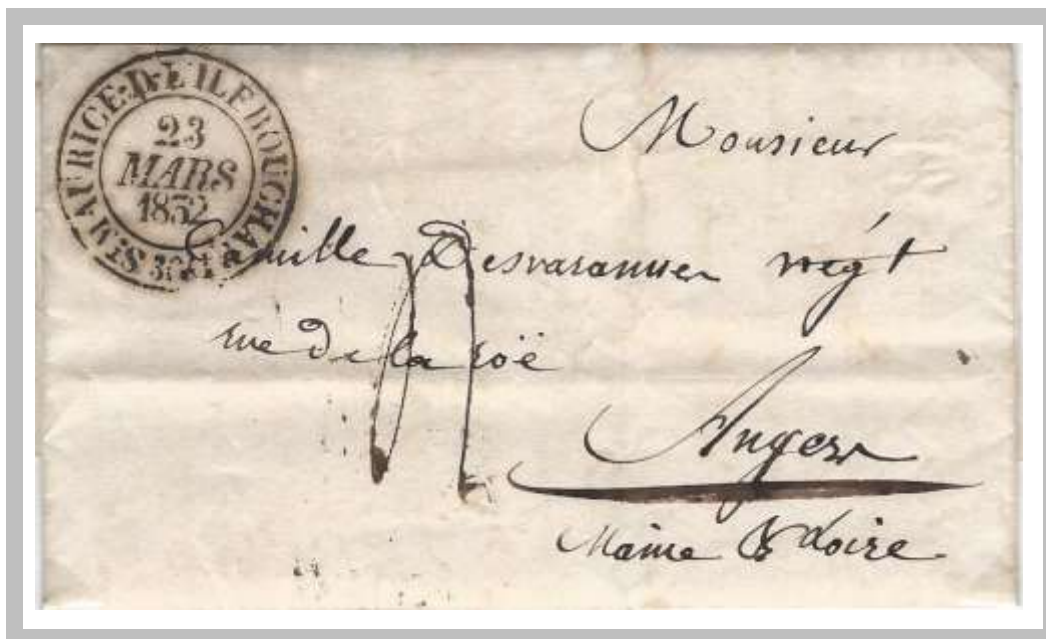 ST MAURICE-D-L'ILEBOUCHARD
23
MARS
1832
Monsieur
Camille Desvarannes négt
rue de la roë
Angers
Maine & Loire